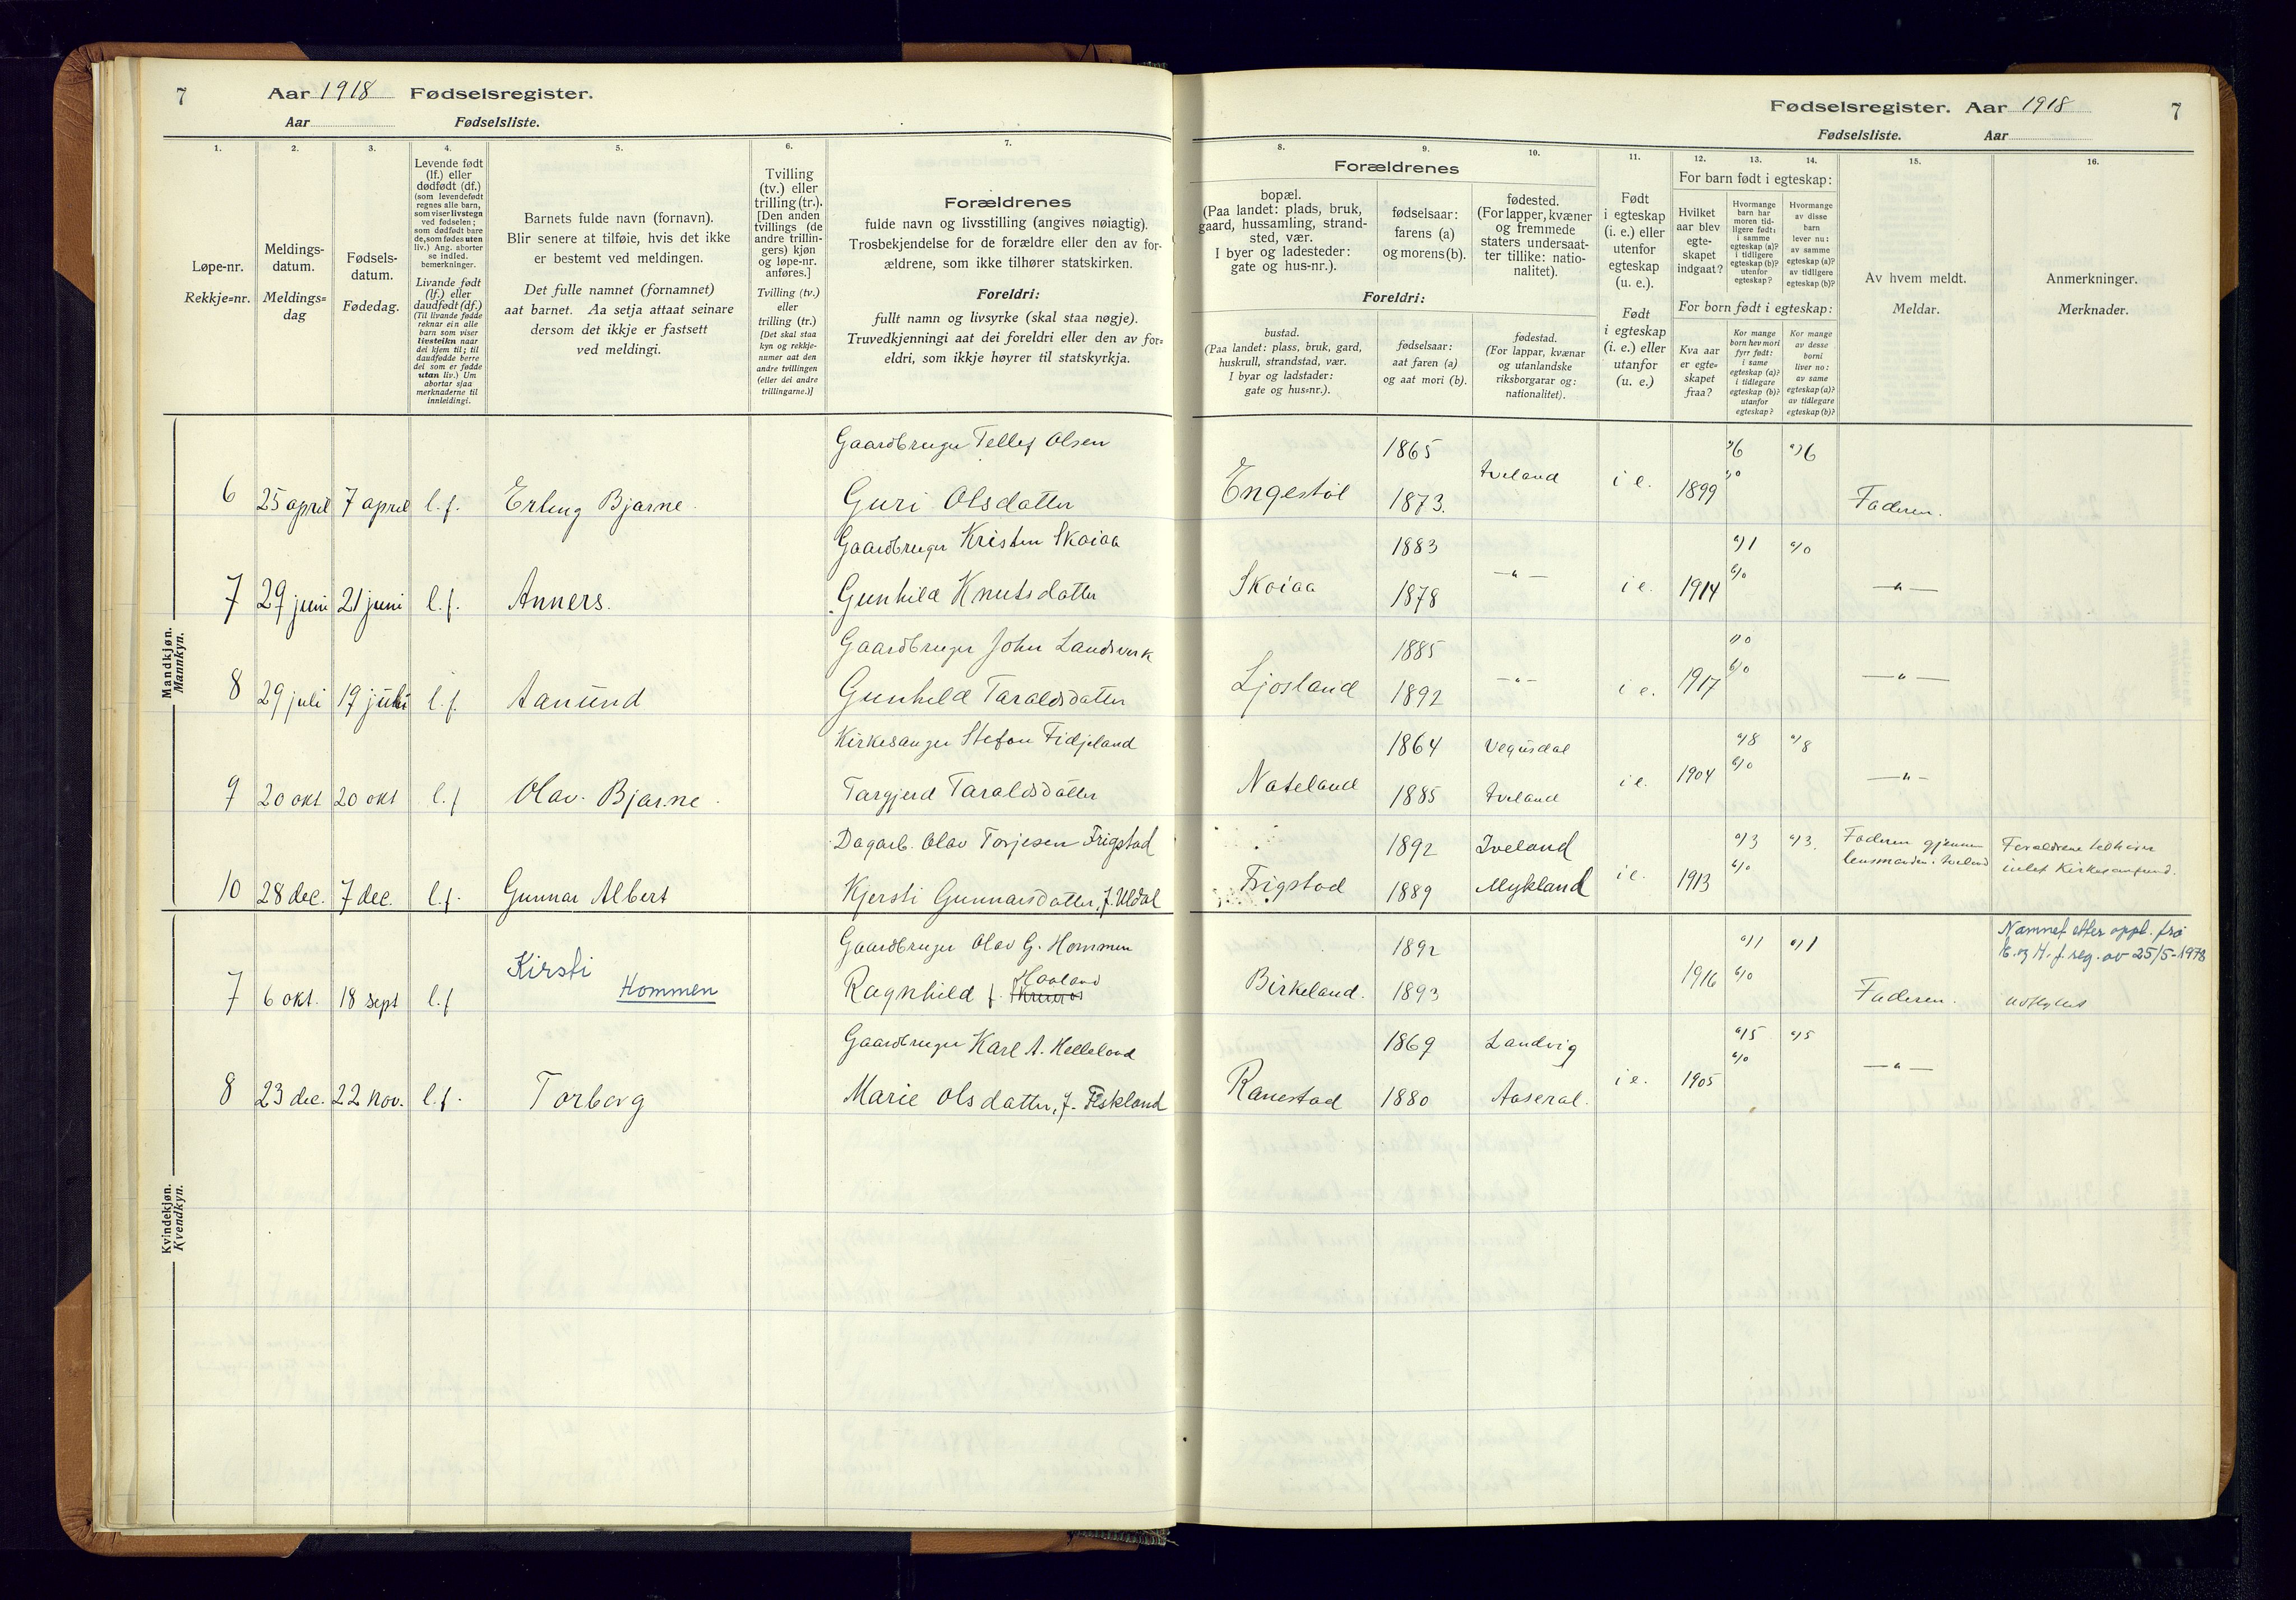 7 Aar 1918 Fødselsregister.
Aar Fødselsliste.
Fødselsregister. Aar 1918 7
Fødselsliste. Aar
1. 2. 3. 4. 5. 6. 7. 8. 9. 10. 11. 12. 13. 14. 15. 16.
Løpe-nr.
Rekkje=nr.
Meldings-
datum.
Meldings=
dag
Fødsels-
datum.
Fødedag.
Levende født
(lf.) eller
dødfødt (df.)
(som levendefødt
regnes alle barn,
som viser livstegn
ved fødselen;
som dødfødt bare
de, som fødes uten
liv.) Ang. aborter
se indled.
bemerkninger.
Livande født
(lf.) eller
daudfødt (df.)
(Til livande fødde
reknar ein alle
barn som viser
livsteikn naar
dei kjem til; til
daudfødde berre
dei som er fødde
utan liv.) Um
abortar sjaa
merknaderne til
innleidingi.
Barnets fulde navn (fornavn).
Blir senere at tilføie, hvis det ikke
er bestemt ved meldingen.
Det fulle namnet (fornamnet)
aat barnet. Aa setja attaat seinare
dersom det ikkje er fastsett
ved meldingi.
Tvilling
(tv.) eller
trilling (tr.).
[Den anden
tvillings (de
andre trillin-
gers) kjøn
og løpe-nr.
anføres.]
Tvilling (tv.)
eller
trilling (tr.)
[Det skal staa
kyn og rekkje-
numer aat den
andre tvillingen
(eller dei andre
trillingarne.)]
Forældrenes
fulde navn og livsstilling (angives nøiagtig).
Trosbekjendelse for de forældre eller den av for-
ældrene, som ikke tilhører statskirken.
Foreldri:
fullt namn og livsyrke (skal staa nøgje).
Truvedkjenningi aat dei foreldri eller den av for=
eldri, som ikkje høyrer til statskyrkja.
Forældrenes
bopæl.
(Paa landet: plads, bruk,
gaard, hussamling, strand-
sted, vær.
I byer og ladesteder:
gate og hus-nr.).
fødselsaar:
farens (a)
og morens (b).
fødested.
(For lapper, kvæner
og fremmede
staters undersaat-
ter tillike: natio-
nalitet).
Foreldri:
bustad.
(Paa landet: plass, bruk, gard,
huskrull, strandstad, vær.
I byar og ladstader:
gate og hus=nr.).
fødselsaar:
aat faren (a)
og aat mori (b).
fødestad.
(For lappar, kvænar
og utanlandske
riksborgarar og:
nationalitet).
Født
i egteskap
(i. e.) eller
utenfor
egteskap
(u. e.).
Født
i egteskap
(i. e.) eller
utanfor
(u. e.)
For barn født i egteskap:
Hvilket
aar blev
egte-
skapet
indgaat?
Hvormange
barn har
moren tid-
ligere født:
i samme
egteskap (a)?
i tidligere
egteskap (b)?
utenfor
egteskap?
Hvormange
av disse
barn
lever nu:
av samme
egteskap (a)?
av tidligere
egteskap (b)?
For born født i egteskap:
Kva aar
er egte=
skapet
fraa?
Kor mange
born hev mori
fyrr født:
i same
egteskap (a)?
i tidlegare
egteskap (b)?
utanfor
egteskap?
Kor mange
av desse
borni
liver no:
av same
egteskap (a)?
av tidlegare
egteskap (b)?
Av hvem meldt.
Meldar.
Anmerkninger.
Merknader.
Mandkjøn.
Mannkyn.
Gaardbruger Tellef Olsen 1865 a)6 a)6
6 25 april 7 april l.f. Erling Bjarne. Guri Olsdatter Engestøl 1873. Iveland i e. 1899 b)0 Faderen.
Gaardbruger Kristen Skaiaa 1883 a)1 a)0
7 29 juni 21 juni l.f. Anners. Gunhild Knutsdatter Skaiaa 1878 —"— i e. 1914 b)0 —"—
Gaardbruger John Landsverk 1885 a)0
8 29 juli 19 juli l.f. Aanund Gunhild Taraldsdatter Ljosland 1892 —"— i e. 1917 b)0 —"—
Kirkesanger Stefan Fidjeland 1864 Vegusdal a)8 a)8
9 20 okt 20 okt l.f Olav Bjarne. Targjerd Taraldsdatter Nateland 1885 Iveland i e. 1904 b)0 —"—
Dagarb. Olav Torjesen Frigstad 1892 Iveland a)3 a)3. Faderen gjennem
lensmanden i Iveland
Forældrene tilhører
intet Kirkesamfund.
10 28 dec. 7 dec. l.f. Gunnar Albert Kjersti Gunnarsdatter, f. Uldal Frigstad 1889 Mykland i e. 1913 b)0
Kvindekjøn.
Kvendkyn.
Gaardbruger Olav G. Hommen 1892 a)1 a)1 Namnet etter oppl. frå
E. og H. f reg. av 25/5-1978
Kirsti
Hommen
Haaland
7 6 okt. 18 sept l.f Ragnhild f. Birkeland. 1893 1916 b)0 Faderen. utflyttet
Gaardbruger Karl A. Helleland 1869 Landvig a)5 a)5
8 23 dec. 22 nov. l.f. Torborg Marie Olsdatter, f. Fiskland Ranestad 1880 Aaseral. i e. 1905 b)0 —"—